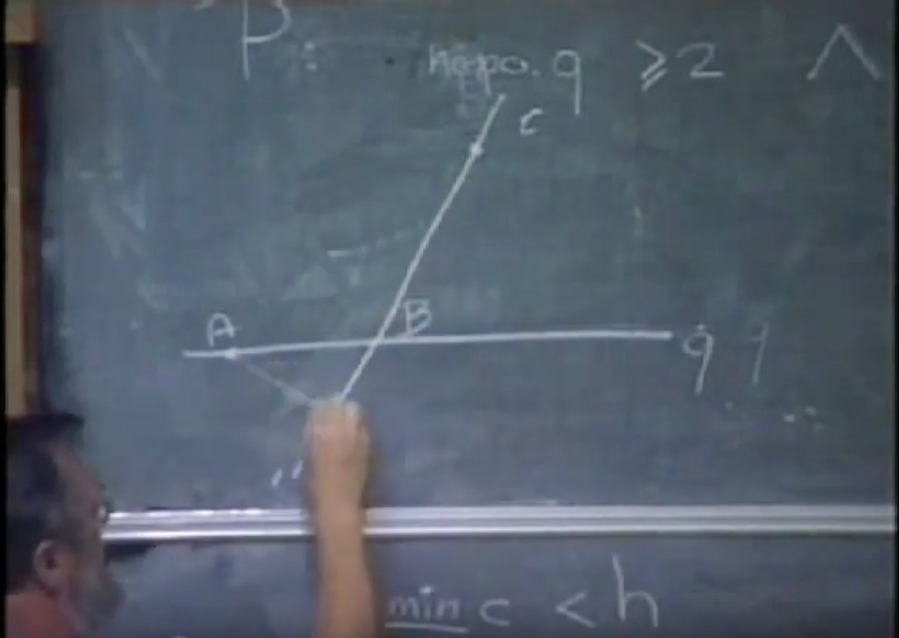 P:
hypo. q ≥ 2 Λ
C
A B
q
min c < h